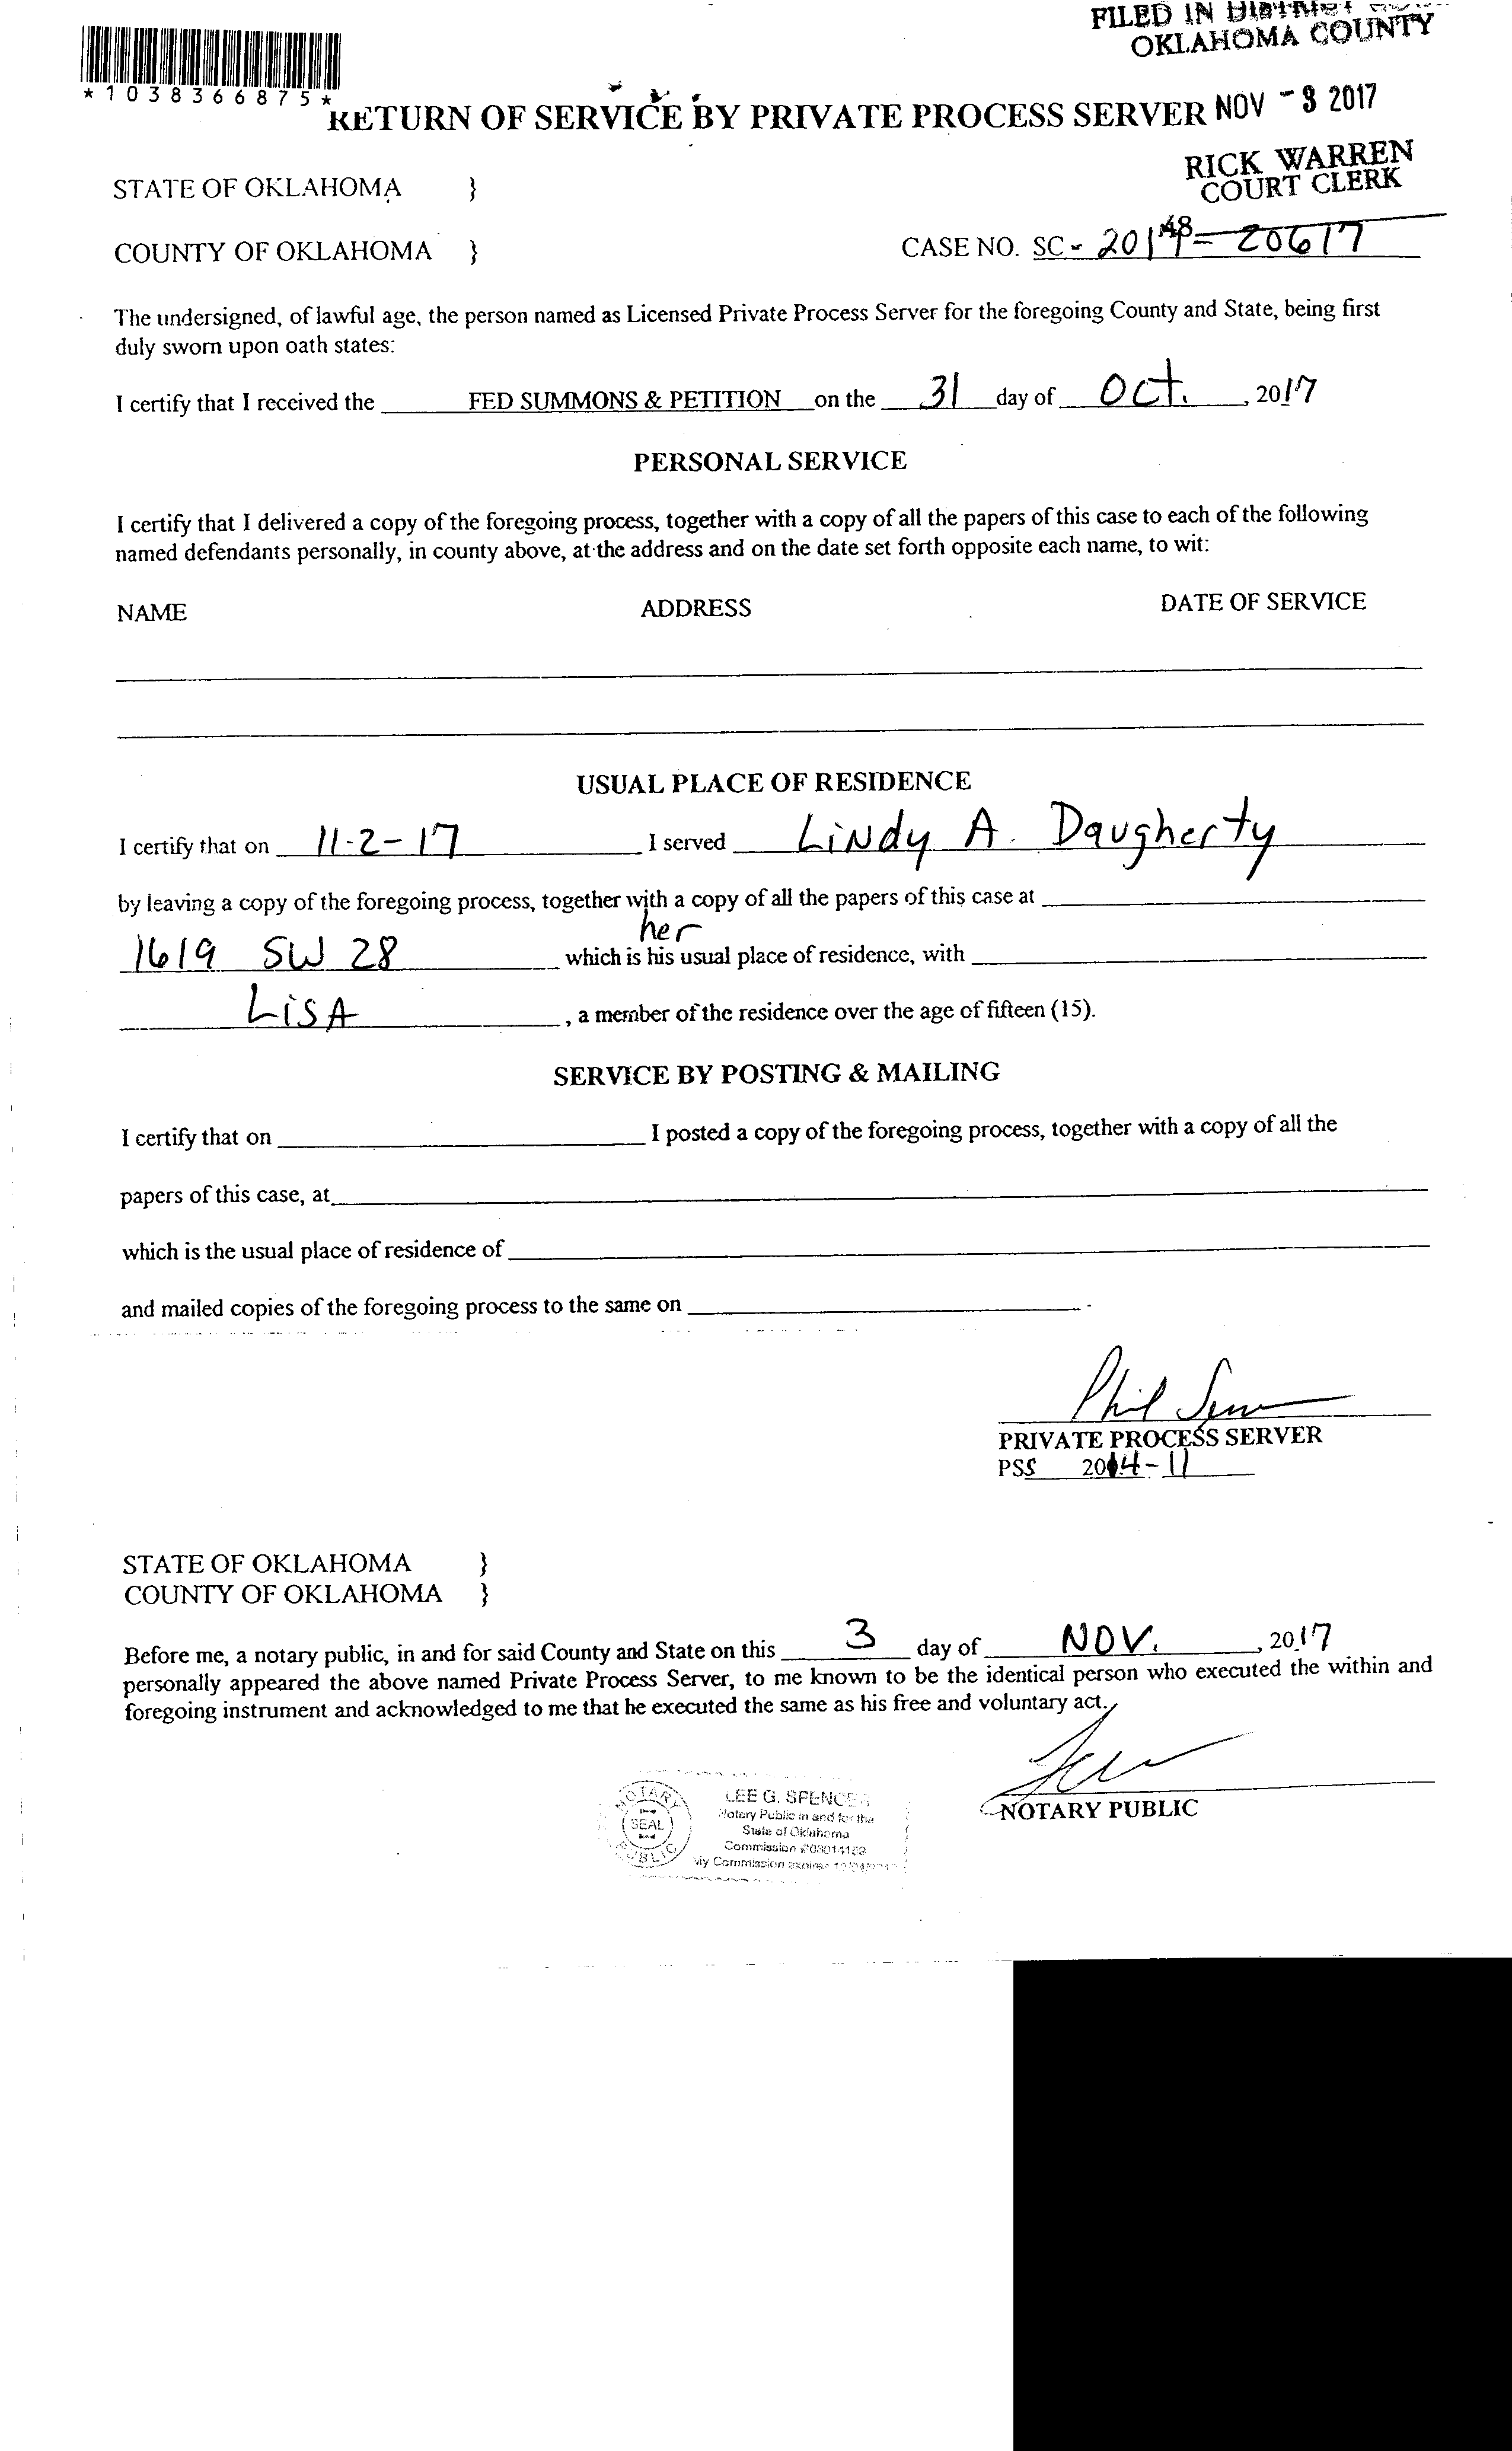 FILED IN DISTRICT
OKLAHOMA COUNTY
*1038366875*
RETURN OF SERVICE BY PRIVATE PROCESS SERVER NOV - 3 2017
RICK WARREN
COURT CLERK
STATE OF OKLAHOMA }
COUNTY OF OKLAHOMA } CASE NO. SC - 20617
The undersigned, of lawful age, the person named as Licensed Private Process Server for the foregoing County and State, being first
duly sworn upon oath states:
I certify that I received the FED SUMMONS & PETITION on the 31 day of Oct. , 2017
PERSONAL SERVICE
I certify that I delivered a copy of the foregoing process, together with a copy of all the papers of this case to each of the following
named defendants personally, in county above, at the address and on the date set forth opposite each name, to wit:
NAME ADDRESS DATE OF SERVICE
USUAL PLACE OF RESIDENCE
I certify that on 11-2-17 I served Lindy A. Daugherty
by leaving a copy of the foregoing process, together with a copy of all the papers of this case at
her
1619 SW 28 which is his usual place of residence, with
LiSA , a member of the residence over the age of fifteen (15).
SERVICE BY POSTING & MAILING
I certify that on I posted a copy of the foregoing process, together with a copy of all the
papers of this case, at
which is the usual place of residence of
and mailed copies of the foregoing process to the same on .
Phil
PRIVATE PROCESS SERVER
PSS 2014-11
STATE OF OKLAHOMA }
COUNTY OF OKLAHOMA }
Before me, a notary public, in and for said County and State on this 3 day of NOV. , 2017
personally appeared the above named Private Process Server, to me known to be the identical person who executed the within and
foregoing instrument and acknowledged to me that he executed the same as his free and voluntary act.
NOTARY PUBLIC
NOTARY
SEAL
PUBLIC
LEE G. SPENCER
Notary Public in and for the
State of Oklahoma
Commission #03014182
My Commission expires